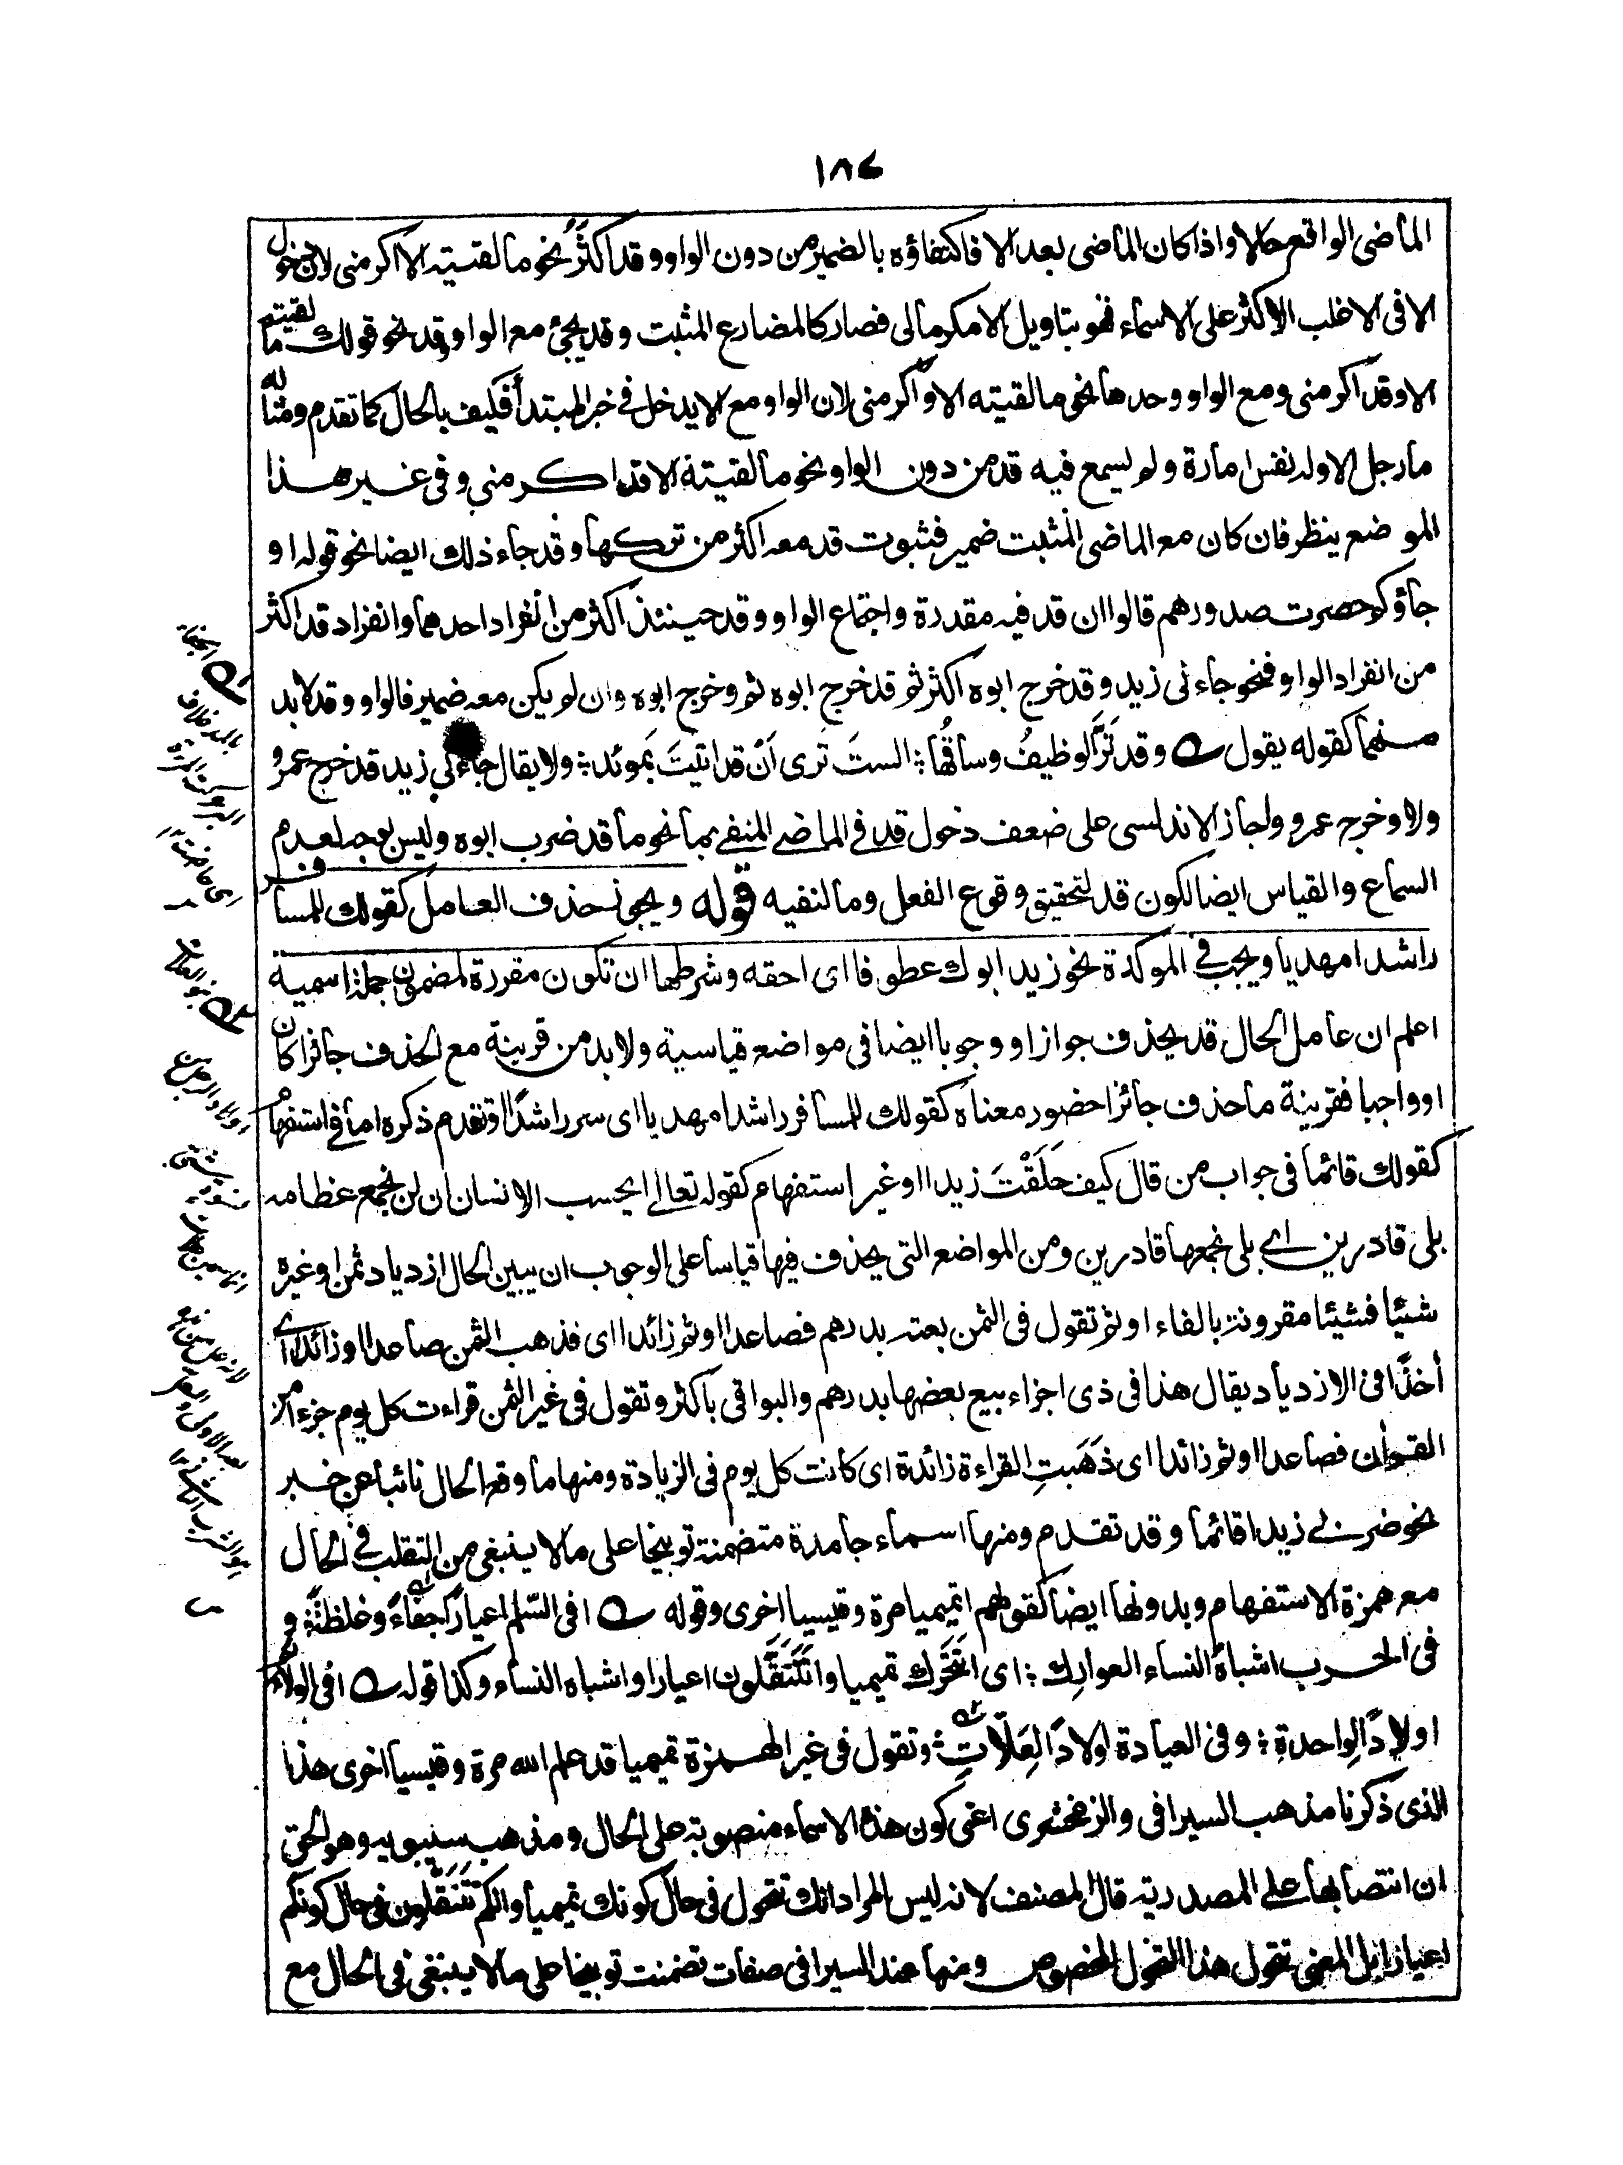 ١٨٤
الماضى الواقع حالا واذا كان الماضى بعد الا فاكتفاؤه بالضمير من دون الواو وقد اكثَرُ نحو ما لقيته الا اكرمنى لان دخول
الا فى الاغلب الاكثر على الاسماء فهو بتاويل الا مكرما لى فصار كالمضارع المثبت وقد يجئ مع الواو وقد نحو قولك ما لقيته
الا وقد اكرمنى ومع الواو وحدها نحو ما لقيته الا واكرمنى لان الواو مع الا يدخل فى خبر المبتدأ فكيف بالحال كما تقدم ومثاله
ما رجل الا وله نفس امارة ولم يسمع فيه قد من دون الواو نحو ما لقيته الا قد اكرمنى وفى غير هذا
الموضع ينظر فان كان مع الماضى المثبت ضمير فثبوت قد معه اكثر من تركها وقد جاء ذلك ايضا نحو قوله او
جاؤكم حصرت صدورهم قالوا ان قد فيه مقدرة واجتماع الواو وقد حينئذ اكثر من انفراد احدهما وانفراد قد اكثر
من انفراد الواو فنحو جاءنى زيد وقد خرج ابوه اكثر ثم قد خرج ابوه ثم وخرج ابوه وان لم يكن معه ضمير فالواو وقد لا بد
منهما كقوله يقول وقد تَرَّ الوظيفُ وساقُها ؛ الستَ تَرى اَنْ قد اتيتَ بمؤئد ؛ ولا يقال جاءنى زيد قد خرج عمرو
ولا وخرج عمرو واجاز الاندلسى على ضعف دخول قد فى الماضى المنفى بما نحو ما قد ضرب ابوه وليس بوجه لعدم
السماع والقياس ايضا لكون قد لتحقيق وقوع الفعل وما لنفيه قوله ويجوز حذف العامل كقولك للمسافر
راشدا مهديا ويجب فى الموكدة نحو زيد ابوك عطوفا اى احقه وشرطها ان تكون مقررة لمضمون جملة اسمية
اعلم ان عامل الحال قد يحذف جوازا ووجوبا ايضا فى مواضع قياسية ولا بد من قرينة مع الحذف جائزا كان
او واجبا فقرينة ما حذف جائزا حضور معناه كقولك للمسافر راشدا مهديا اى سر راشدًا او تقدم ذكره اما فى استفهام
كقولك قائما فى جواب من قال كيف خَلَفْتَ زيدا او غير استفهام كقوله تعالى ايحسب الانسان ان لن نجمع عظامه
بلى قادرين اى بلى نجمعها قادرين ومن المواضع التى يحذف فيها قياسا على الوجوب ان يبين الحال ازدياد ثمن او غيره
شيئا فشيئا مقرونة بالفاء او ثم تقول فى الثمن بعته بدرهم فصاعدا او ثم زائدا اى فذهب الثمن صاعدا او زائدا اى
أخذًا فى الازدياد يقال هذا فى ذى اجزاء بيع بعضها بدرهم والبواقى باكثر وتقول فى غير الثمن قراءت كل يوم جزءا من
القرأن فصاعدا او ثم زائدا اى ذَهَبَتِ القراءة زائدة اى كانت كل يوم فى الزيادة ومنها ما وقع الحال نائبا عن خبر
نحو ضربى زيدا قائما وقد تقدم ومنها اسماء جامدة متضمنة توبيخا على ما لا ينبغى من التقلب فى الحال
مع همزة الاستفهام وبدونها ايضا كقولهم اتميميا مرة وقيسيا اخرى وقوله افى السّلم اعيارًا جفاءً وغلظةً ؛ و
فى الحرب اشباهَ النساء العوارك ؛ اى اتتحَرَّك تميميا واتَتَنَقَّلون اعيارا واشباه النساء وكذا قوله افى الولائم
اولادًا لِواحدةٍ ؛ وفى العيادة اولادًا لِعَلّاتِ ؛ وتقول فى غير الهمزة تميميا قد علم الله مرة وقيسيا اخرى هذا
الذى ذكرنا مذهب السيرافى والزمخشرى اعنى كون هذه الاسماء منصوبة على الحال ومذهب سيبويه وهو الحق
ان انتصابها على المصدرية قال المصنف لانه ليس المراد انك تتحول فى حال كونك تميميا وانكم تَتَنَقَّلون فى حال كونكم
اعيارا بل المعنى تتحول هذا التحول المخصوص ومنها عند السيرافى صفات تضمنت توبيخا على ما لا ينبغى فى الحال مع